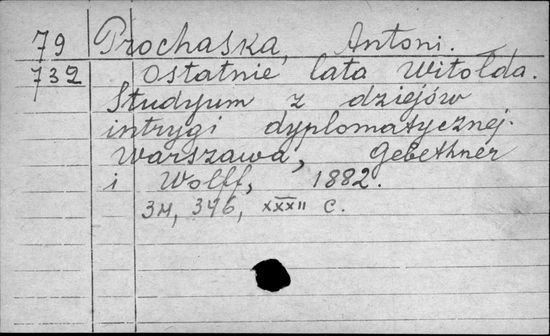 79 Prochaska, Antoni.
732 Ostatnie lata Witołda.
Studyum z dziejów
intrygi dyplomatycznej.
Warszawa, Gebethner
i Wolff, 1882.
3н, 346, XXXII с.